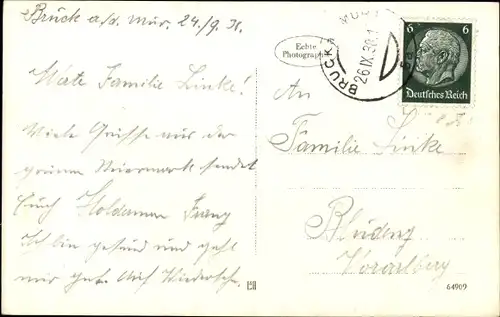 Bruck a./d. Mur. 24./9. 38.
Werte Familie Linke!
Viele Grüsse aus der
grünen Steiermark sendet
Euch Holdermann Franz
Ich bin gesund und geht
mir gut. Auf Wiederseh.
Echte
Photographie
BRUCK MUR
26.IX.38
6 6
Deutsches Reich
An
Familie Linke
Bludenz
Vorarlberg
64909